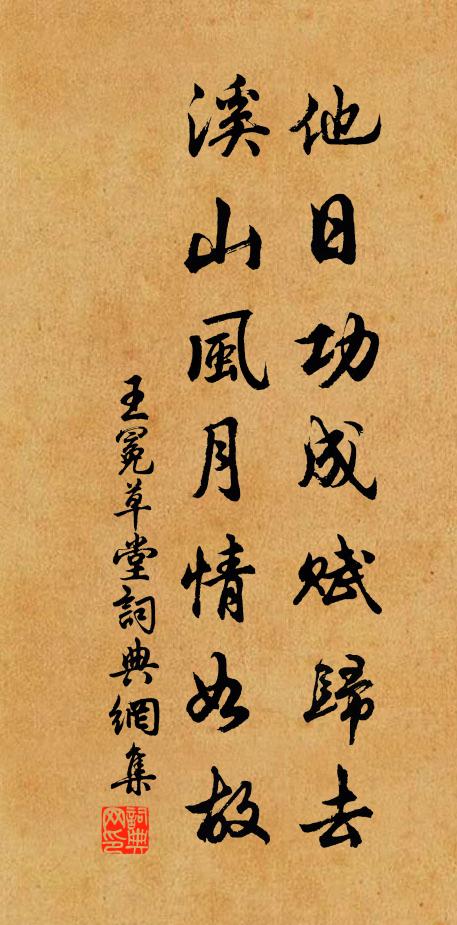 他日功成賦歸去
溪山風月情如故
王冕草堂詞典網集
詞典网印